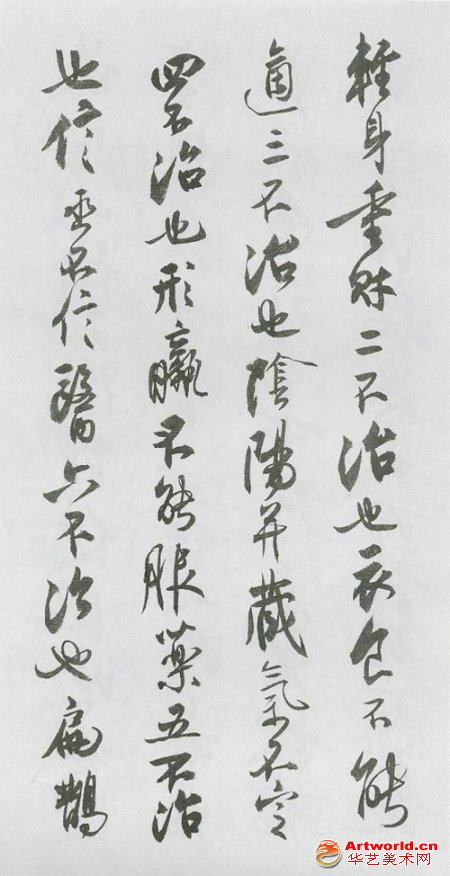 輕身重財二不治也衣食不能
適三不治也陰陽并藏氣不定
四不治也形羸不能服藥五不治
也信巫不信醫六不治也扁鵲
Artworld.cn
华艺美术网